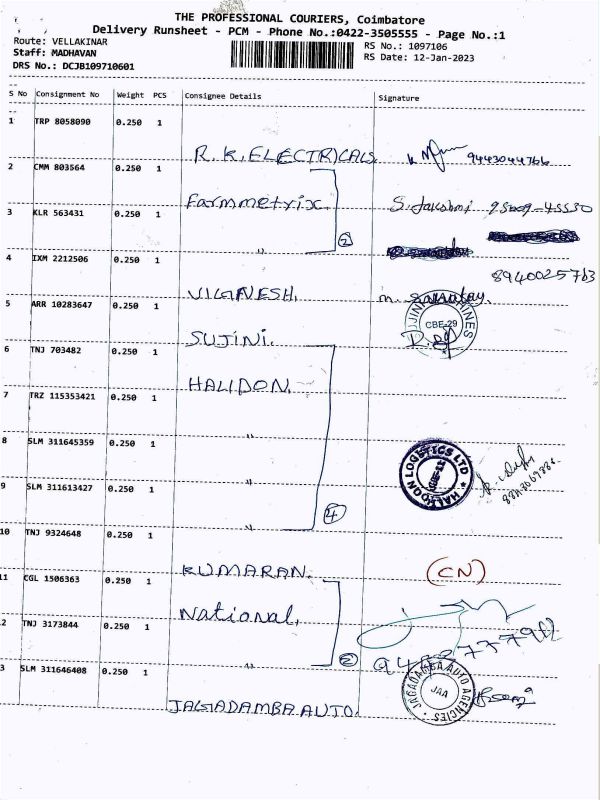 THE PROFESSIONAL COURIERS, Coimbatore
Delivery Runsheet - PCM - Phone No.:0422-3505555 - Page No.:1
Route: VELLAKINAR
RS No.: 1097106
Staff: MADHAVAN
RS Date: 12-Jan-2023
DRS No.: DCJB109710601
S No Consignment No Weight PCS Consignee Details Signature
1 TRP 8058090 0.250 1
R.K. ELECTRICALS 9443044766
2 CMM 803564 0.250 1
Farmmetrix S. Jakshmi
3 KLR 563431 0.250 1
" 2
4 IXM 2212506 0.250 1
8940025763
VIGNESH.
5 ARR 10283647 0.250 1
CBE-29
SUJINI.
6 TNJ 703482 0.250 1
HALIDON.
7 TRZ 115353421 0.250 1
"
8 SLM 311645359 0.250 1
" HALIDON LOGISTICS LTD
9 SLM 311613427 0.250 1
" 4
10 TNJ 9324648 0.250 1
KUMARAN. (CN)
11 CGL 1506363 0.250 1
National.
2 TNJ 3173844 0.250 1
" 2
3 SLM 311646408 0.250 1
JAGADAMBA AUTO AGENCIES
JAA
JAGADAMBA AUTO.